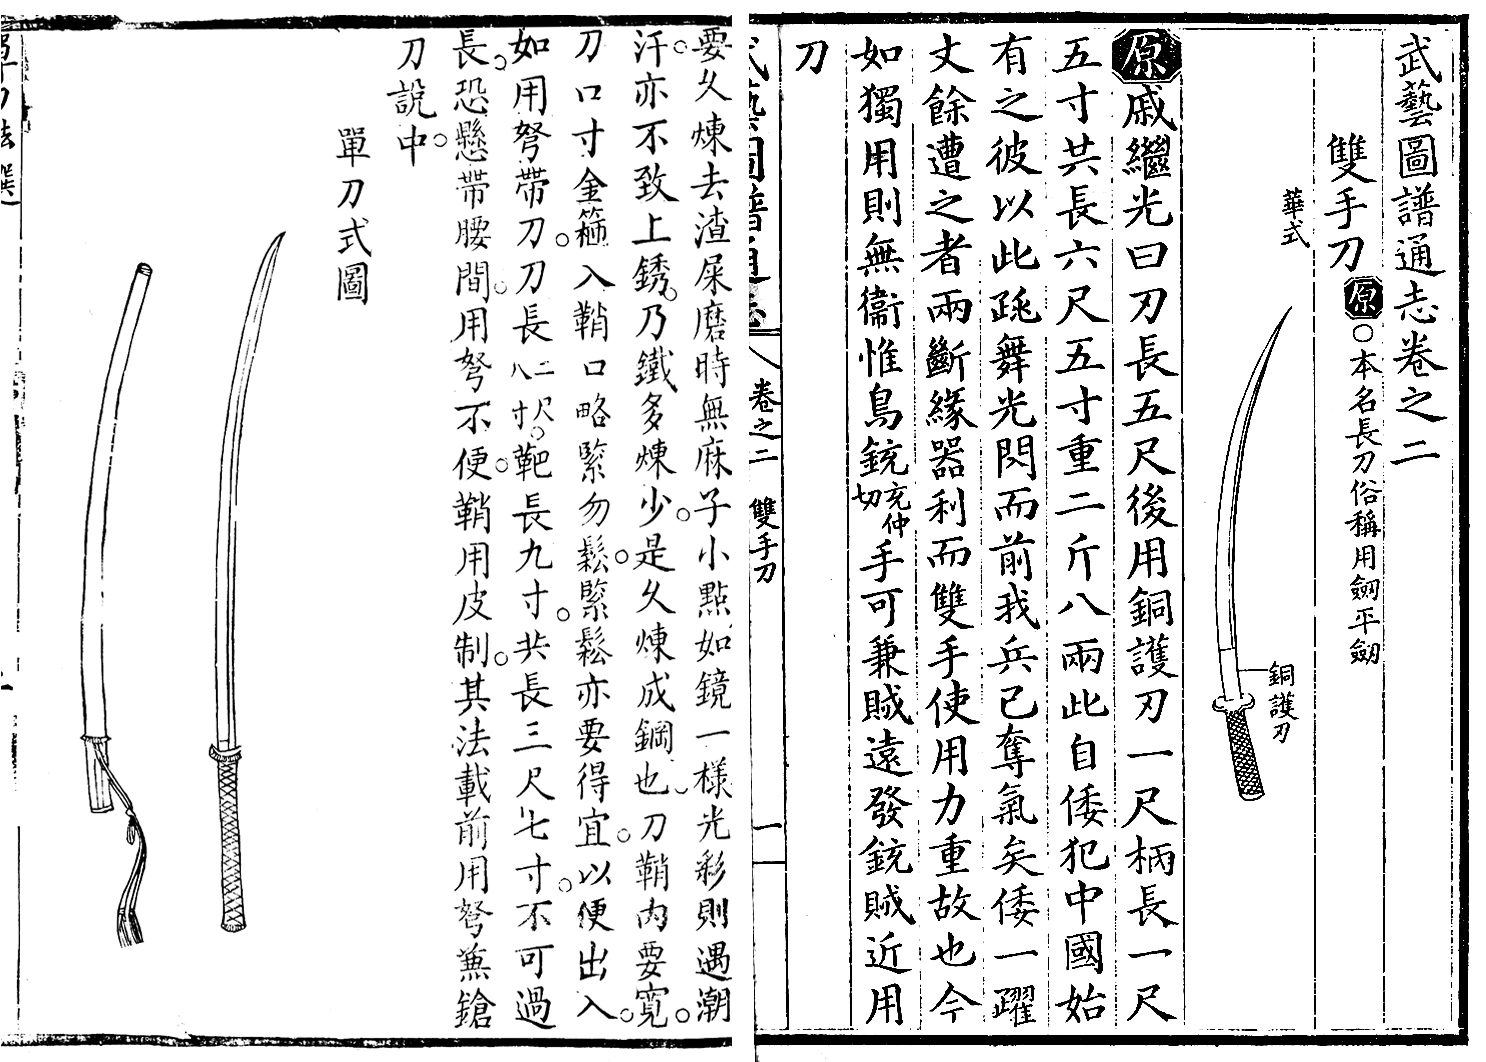 武藝圖譜通志卷之二
雙手刀 原 ○本名長刀俗稱用劒平劒
華式
銅護刃
原 戚繼光曰刃長五尺後用銅護刃一尺柄長一尺
五寸共長六尺五寸重二斤八兩此自倭犯中國始
有之彼以此跳舞光閃而前我兵已奪氣矣倭一躍
丈餘遭之者兩斷緣器利而雙手使用力重故也今
如獨用則無衞惟鳥銃充仲切手可兼賊遠發銃賊近用
刀
卷之二 雙手刀 一
要久煉去渣屎磨時無麻子小點如鏡一樣光彩則遇潮
汗亦不致上銹乃鐵多煉少是久煉成鋼也刀鞘內要寬
刀口寸金箍入鞘口略緊勿鬆緊鬆亦要得宜以便出入
如用弩帶刀刀長二尺八寸靶長九寸共長三尺七寸不可過
長恐懸帶腰間用弩不便鞘用皮制其法載前用弩蕪鎗
刀說中
單刀式圖